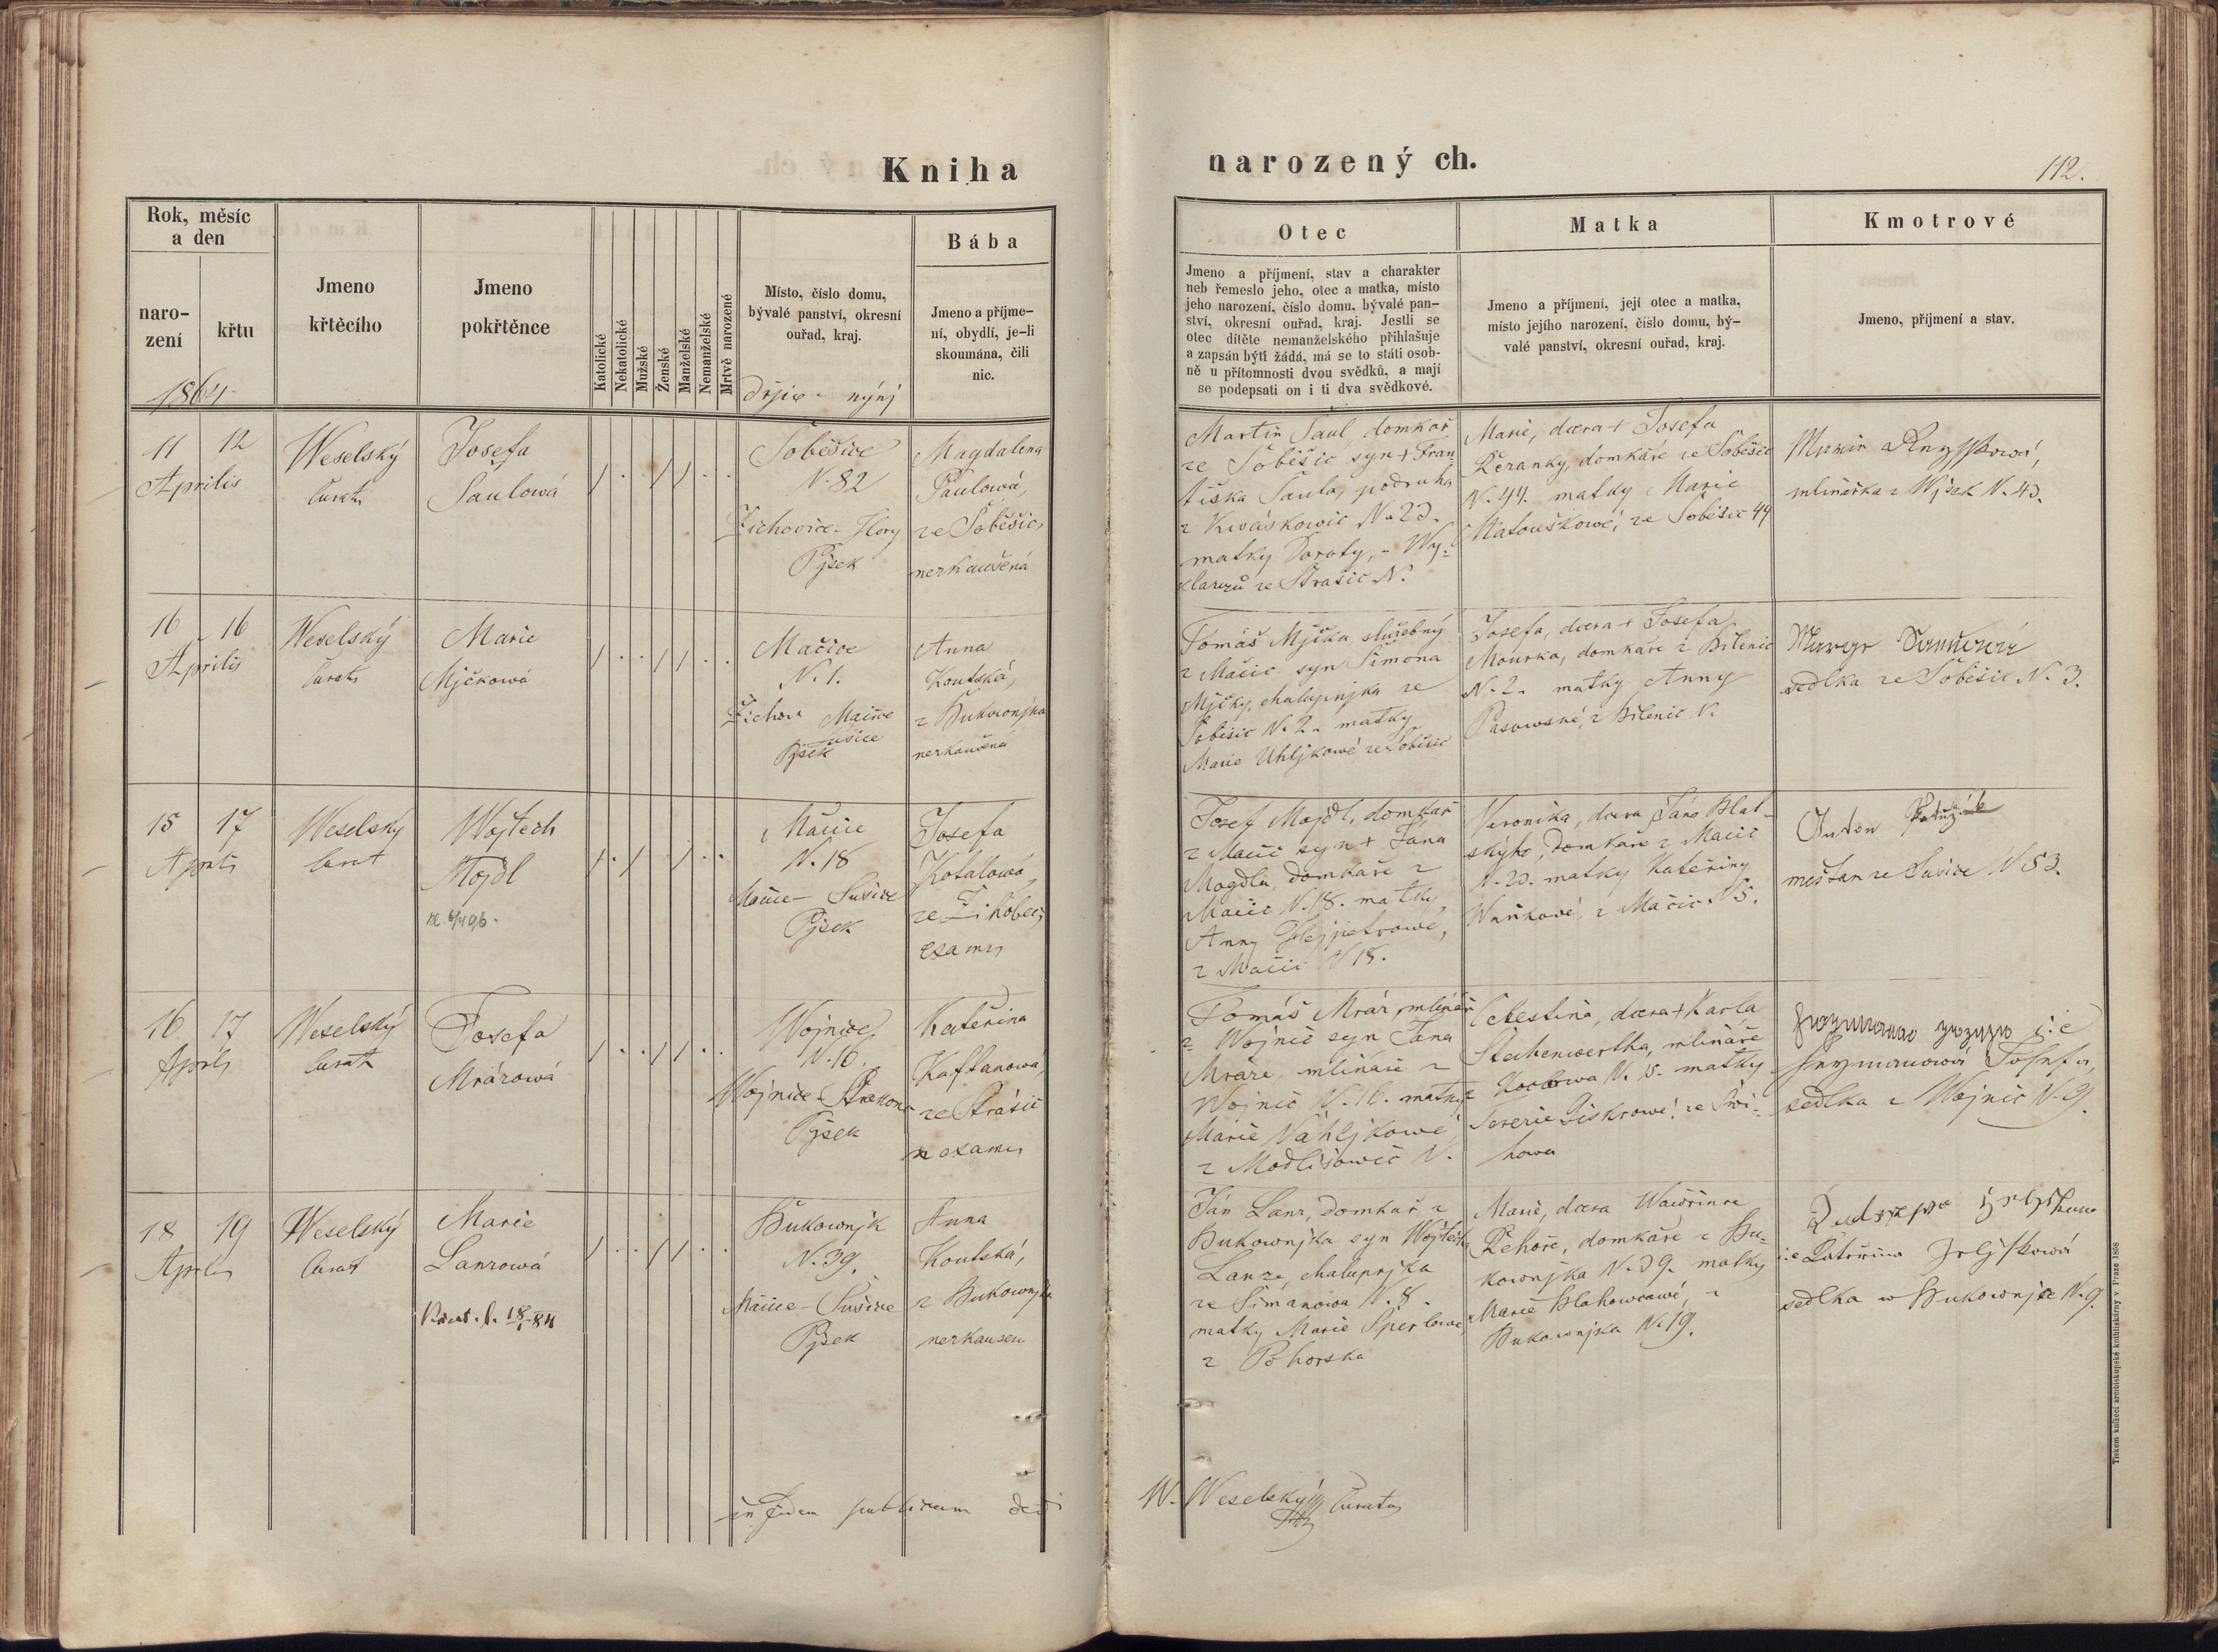 Kniha
narozený ch.
112.
Rok, měsíc
a den
naro-
zení
křtu
1864
Jmeno
křtěcího
Jmeno
pokřtěnce
Katolické
Nekatolické
Mužské
Ženské
Manželské
Nemanželské
Mrtvě narozené
Místo, číslo domu,
bývalé panství, okresní
ouřad, kraj.
dřjve - nýnj
Bába
Jmeno a příjme-
ní, obydlí, je-li
skoumána, čili
nic.
Otec
Jmeno a příjmení, stav a charakter
neb řemeslo jeho, otec a matka, místo
jeho narození, číslo domu, bývalé pan-
ství, okresní ouřad, kraj. Jestli se
otec dítěte nemanželského přihlašuje
a zapsán býti žádá, má se to státi osob-
ně u přítomnosti dvou svědků, a mají
se podepsati on i ti dva svědkové.
Matka
Jmeno a příjmení, její otec a matka,
místo jejího narození, číslo domu, bý-
valé panství, okresní ouřad, kraj.
Kmotrové
Jmeno, příjmení a stav.
11 12
Aprilis
Weselský
Curat
Josefa
Šaulowá
Soběšice
N. 82
Žichovice - Hory
Pjsek
Magdalena
Paulowá,
ze Soběšic,
nezkaušená
Martin Šaul, domkař
ze Soběšic syn + Fran-
tiška Šaula, podruha
z Kwáskowic N. 23.
matky Doroty, - Wy-
ze Strašic N.
Marie, dcera + Josefa
Řeranky, domkáře ze Soběšic
N. 44. matky Marie
Matouškowé, ze Soběšic 44
mlinářka z N. 43.
16 16
Aprilis
Weselský
Curat
Marie
Mjčkowá
Mačice
N. 1.
Žichow Mačice
Sušice
Pjsek
Anna
Koutská,
z Bukownjka
nezkaušená
Tomáš Mjčka služebný
z Mačic syn Šimona
Mjčky, chalupnjka ze
Soběšic N. 2. matky
Marie Uhljkowé ze Soběšic
Josefa, dcera + Josefa
Mourka, domkáře z Bilenic
N. 2. matky Anny
Pasowské, z Bilenic N.
sedlka ze Soběšic N. 3.
15 17
Aprilis
Weselský
Curat
Wojtěch
Mojdl
Mačice
N. 18
Mačice - Sušice
Pjsek
Josefa
Kotalowá
ze Žikobec,
exam
Josef Mojdl, domkař
z Mačic syn + Jana
Mogdla, domkáře z
Mačic N. 18. matky
Anny Hejpetrowé,
z Mačic N 18.
Veronika, dcera Jána Blat-
ského, domkáře z Mačic
N. 23. matky Kateřiny
Waňkowé, z Mačic N 5.
Anton
měšťan ze Sušice N 53.
16 17
Aprilis
Weselský
Curat
Josefa
Mrázowá
Wojnice
N. 16.
Wojnice - Strakonic
Pjsek
Kateřina
Kaftanowa,
ze Strašic
n exam
Tomáš Mráz, mlinář
z Wojnic syn Jana
Mráze, mlináře z
Wojnic N. 16. matky
Marie Náhljkowé
z Modlišowic N.
Celestina, dcera + Karla
Stechenwertha, mlináře
z N. 15. matky
Terezie Piskrowé, ze Swi-
howa
sedlka z Wojnic N. 9.
18 19
Aprilis
Weselský
Curat
Marie
Lanzowá
Bukownjk
N. 39.
Mačice - Sušice
Pjsek
Anna
Koutská,
z Bukownjka
nezkaušen
Ján Lanz, domkař z
Bukownjka syn Wojtěcha
Lanze, chalupnjka
ze Šimanowa N. 8.
matky Marie Šperlowé
z Pohorska
Marie, dcera Wawřince
Řehoře, domkáře z Bu-
kownjka N. 39. matky
Marie Blahowcowé, z
Bukownjka N. 19.
sedlka w Bukownjce N. 9.
in fidem publicam dedi
W. Weselský Curatus
Tiskem knížecí arcibiskupské knihtiskárny v Praze 1868